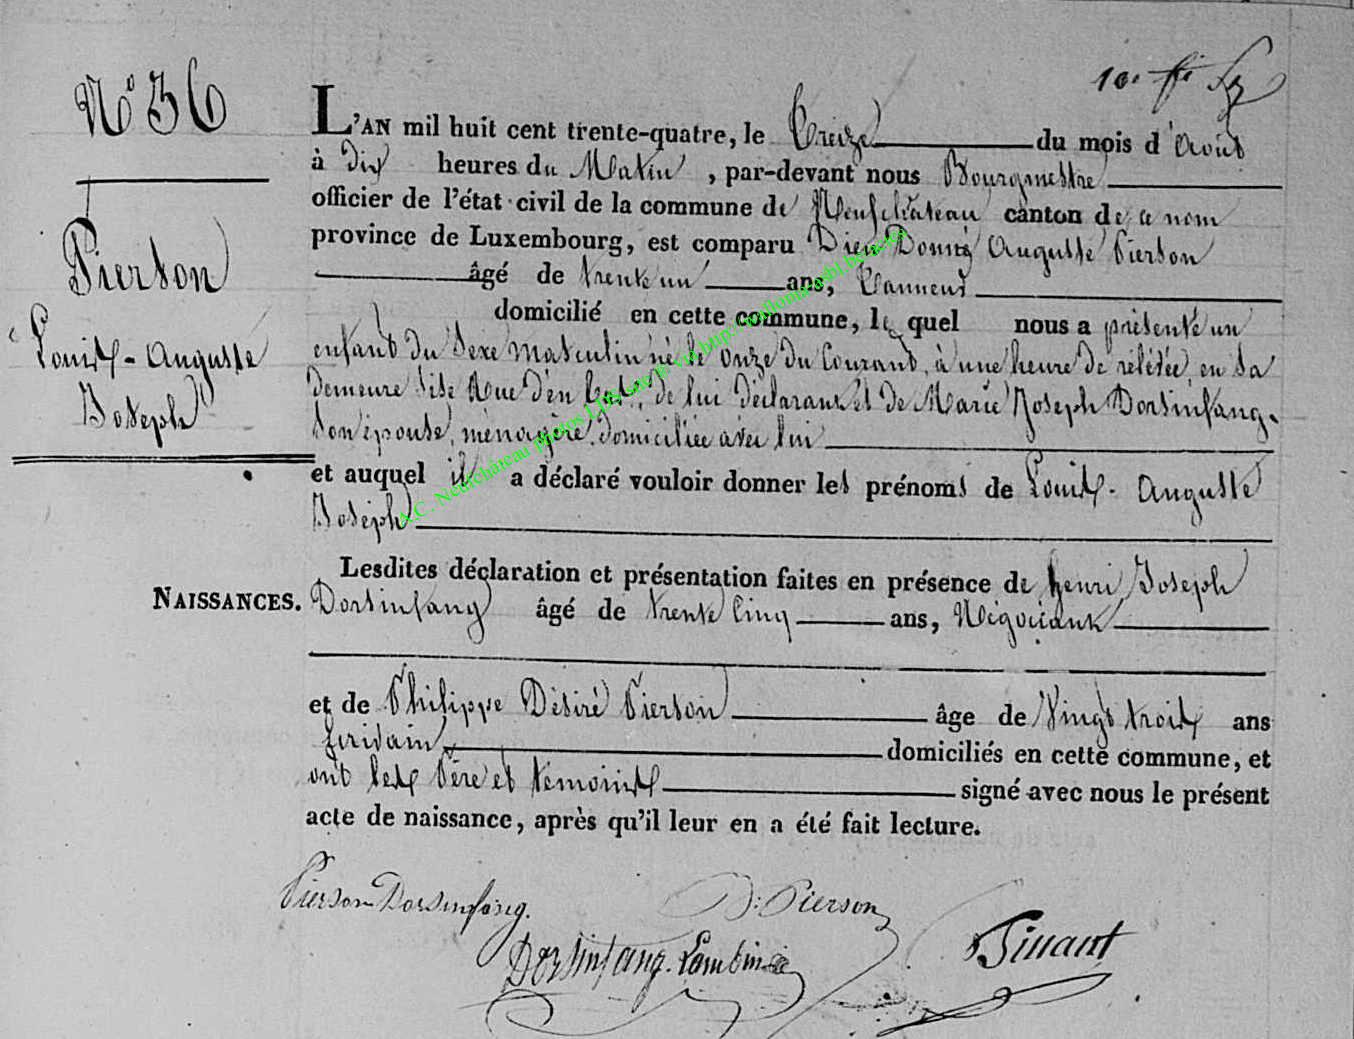 N.° 36
L'AN mil huit cent trente-quatre, le Treize du mois d'Août
à dix heures du Matin, par-devant nous Bourgmestre
officier de l'état civil de la commune de Neufchâteau canton de ce nom
province de Luxembourg, est comparu Dieu Donné Auguste Pierson
âgé de trente un ans, Tanneur
domicilié en cette commune, lequel nous a présenté un
enfant du Sexe masculin né le onze du Courant, à une heure de rélévée, en sa
demeure sise Rue d'en bas, de lui déclarant et de Marie Joseph Dorsinfang.
son épouse, ménagère, domiciliée avec lui
et auquel il a déclaré vouloir donner les prénoms de Louis-Auguste
Joseph
Lesdites déclaration et présentation faites en présence de henri Joseph
Dorsinfang âgé de trente Cinq ans, Négociant
et de Philippe Désiré Pierson âge de Vingt trois ans
Ecrivain domiciliés en cette commune, et
ont les Père et témoins signé avec nous le présent
acte de naissance, après qu'il leur en a été fait lecture.
Pierson
Louis-Auguste
Joseph
NAISSANCES.
Pierson Dorsinfang.
D: Pierson
Dorsinfang-
Tinant
A.C. Neufchâteau photos